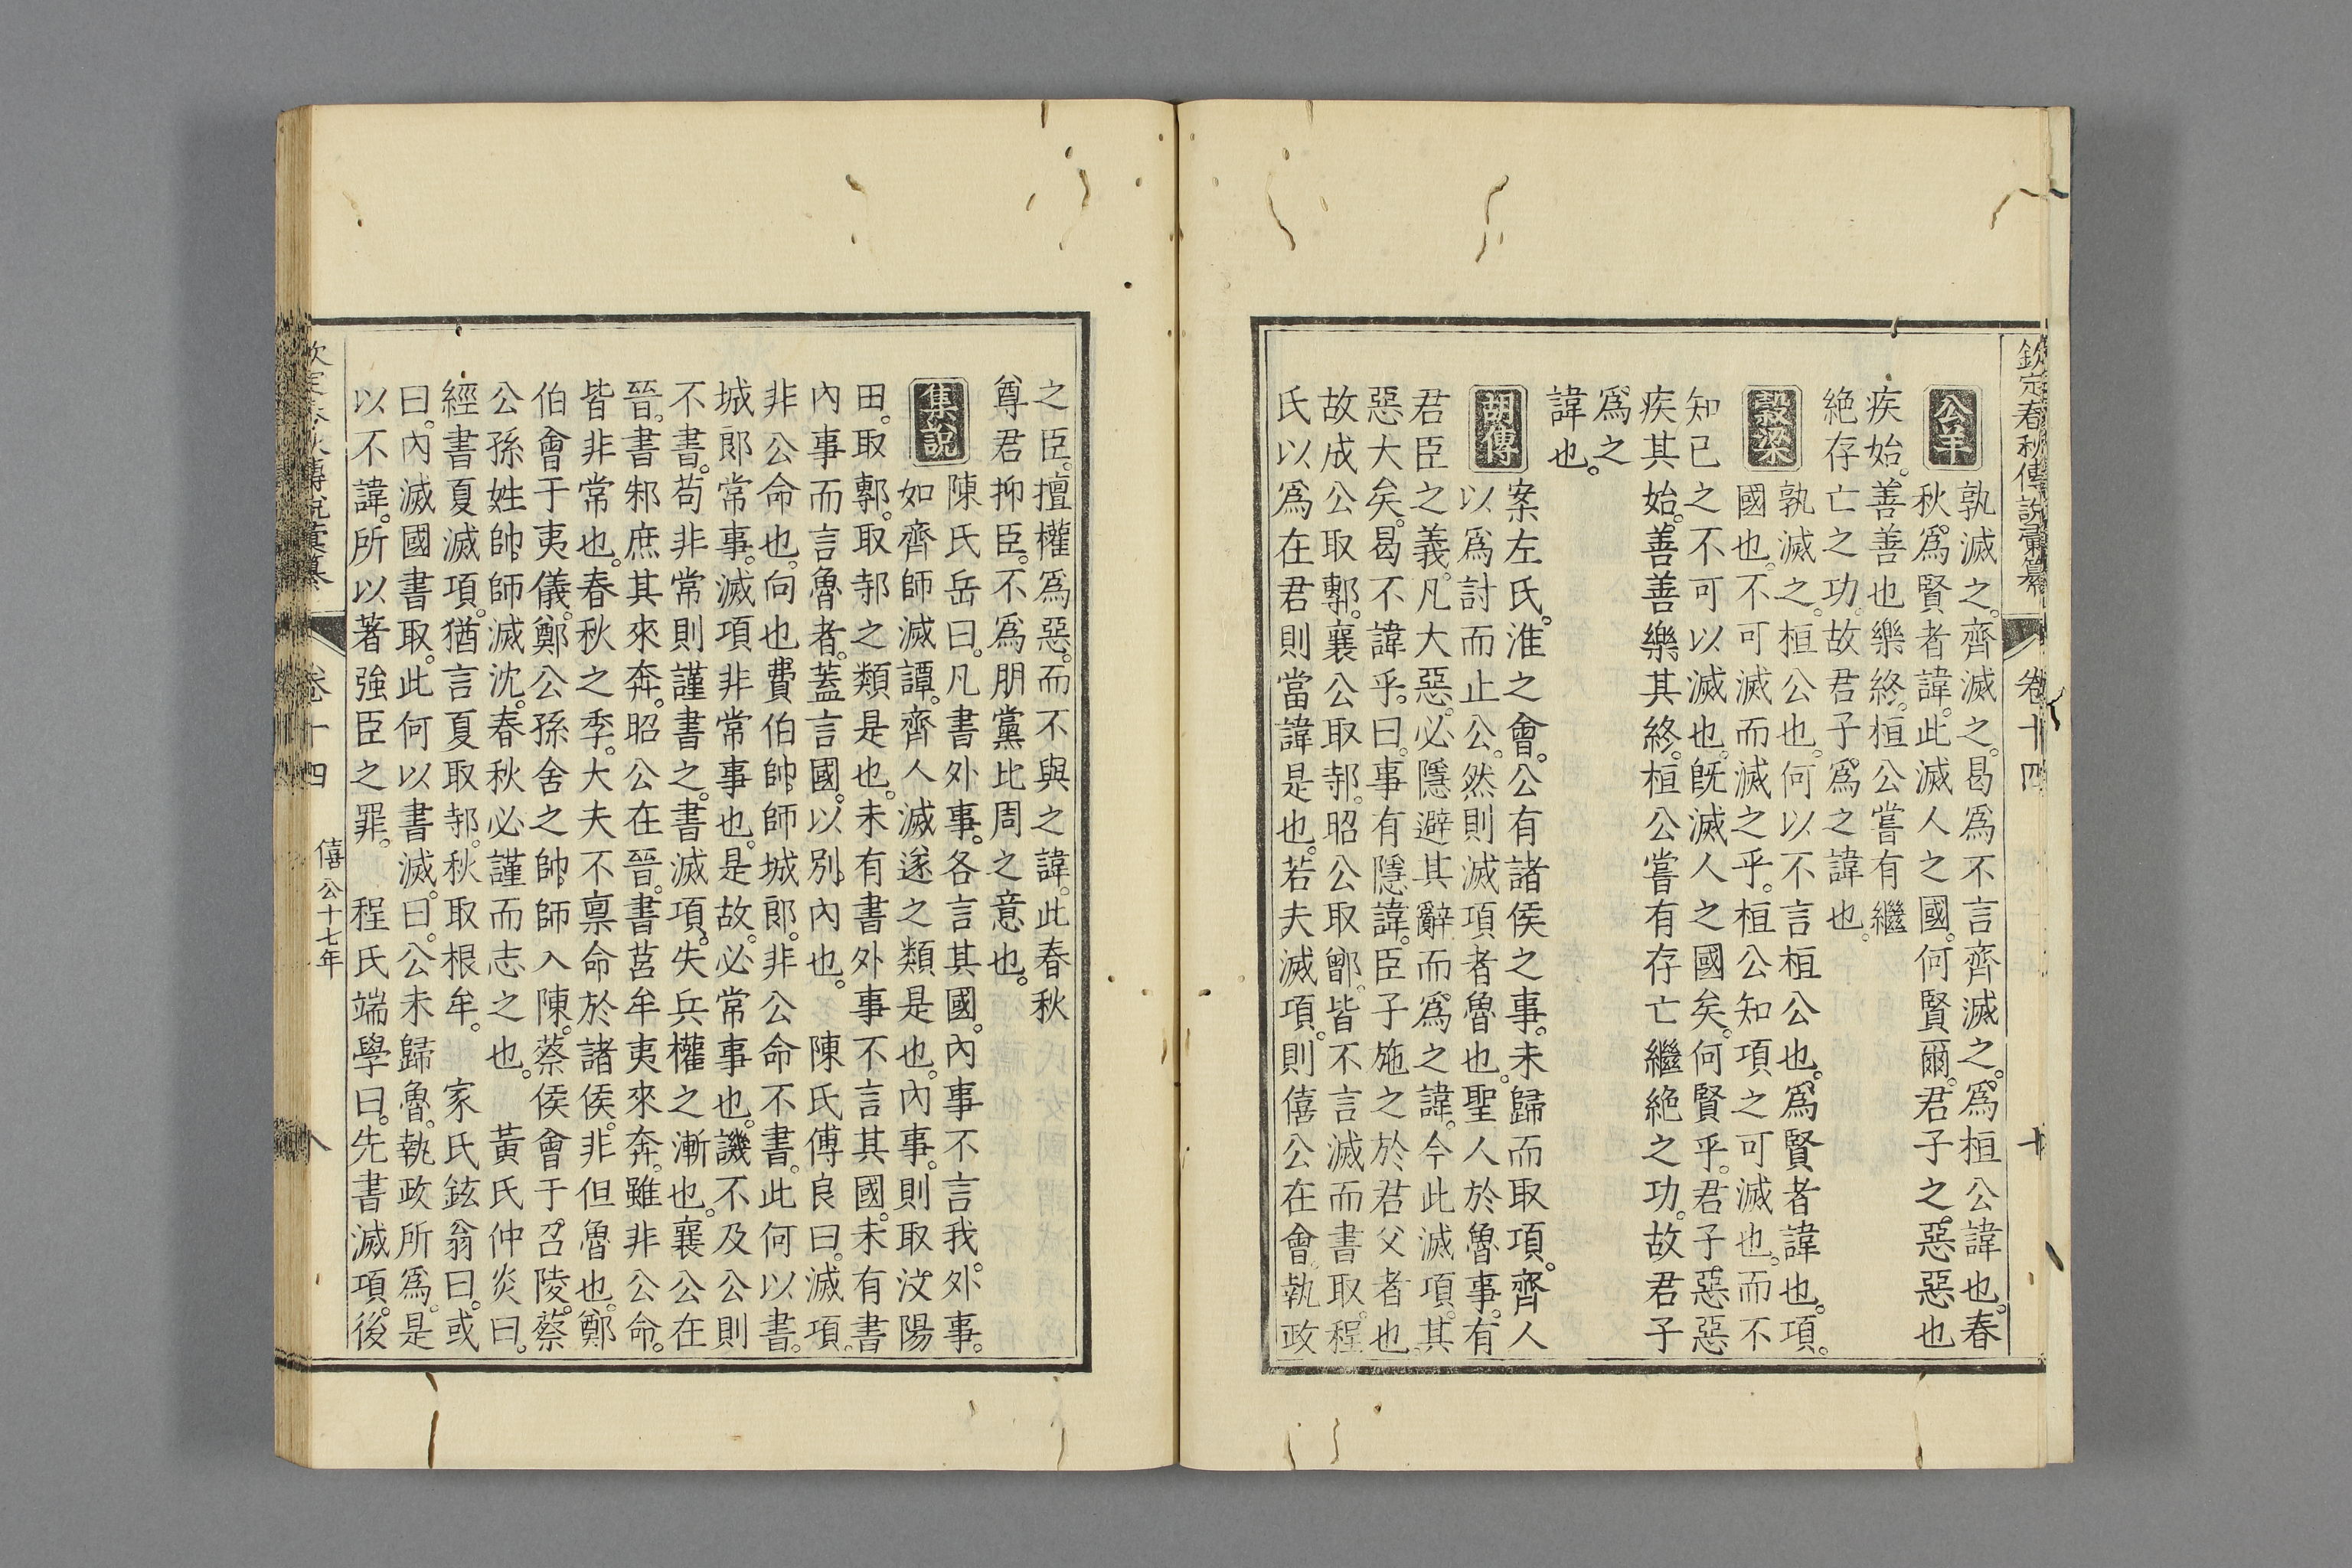 欽定春秋傳說彙纂 卷十四 十
公羊 孰滅之。齊滅之。曷爲不言齊滅之。爲桓公諱也。春
秋。爲賢者諱。此滅人之國。何賢爾。君子之惡惡也
疾始。善善也樂終。桓公嘗有繼
絶存亡之功。故君子爲之諱也。
穀梁 孰滅之。桓公也。何以不言桓公也。爲賢者諱也。項。
國也。不可滅而滅之乎。桓公知項之可滅也。而不
知已之不可以滅也。旣滅人之國矣。何賢乎。君子惡惡
疾其始。善善樂其終。桓公嘗有存亡繼絶之功。故君子
爲之
諱也。
胡傳 案左氏。淮之會。公有諸侯之事。未歸而取項。齊人
以爲討而止公。然則滅項者魯也。聖人於魯事。有
君臣之義。凡大惡。必隱避其辭而爲之諱。今此滅項。其
惡大矣。曷不諱乎。曰。事有隱諱。臣子施之於君父者也。
故成公取鄟。襄公取邿。昭公取鄫。皆不言滅而書取。程
氏以爲在君則當諱是也。若夫滅項。則僖公在會。執政
之臣。擅權爲惡。而不與之諱。此春秋
尊君抑臣。不爲朋黨比周之意也。
集說 陳氏岳曰。凡書外事。各言其國。內事不言我。外事。
如齊師滅譚。齊人滅遂之類是也。內事。則取汶陽
田。取鄟。取邿之類是也。未有書外事不言其國。未有書
內事而言魯者。蓋言國。以別內也。 陳氏傅良曰。滅項。
非公命也。向也費伯帥師城郎。非公命不書。此何以書。
城郎常事。滅項非常事也。是故。必常事也。譏不及公則
不書。苟非常則謹書之。書滅項。失兵權之漸也。襄公在
晉。書邾庶其來奔。昭公在晉。書莒牟夷來奔。雖非公命。
皆非常也。春秋之季。大夫不禀命於諸侯。非但魯也。鄭
伯會于夷儀。鄭公孫舍之帥師入陳。蔡侯會于召陵。蔡
公孫姓帥師滅沈。春秋必謹而志之也。 黃氏仲炎曰。
經書夏滅項。猶言夏取邿。秋取根牟。 家氏鉉翁曰。或
曰。內滅國書取。此何以書滅。曰。公未歸魯。執政所爲。是
以不諱。所以著強臣之罪。 程氏端學曰。先書滅項。後
卷十四 僖公十七年 八